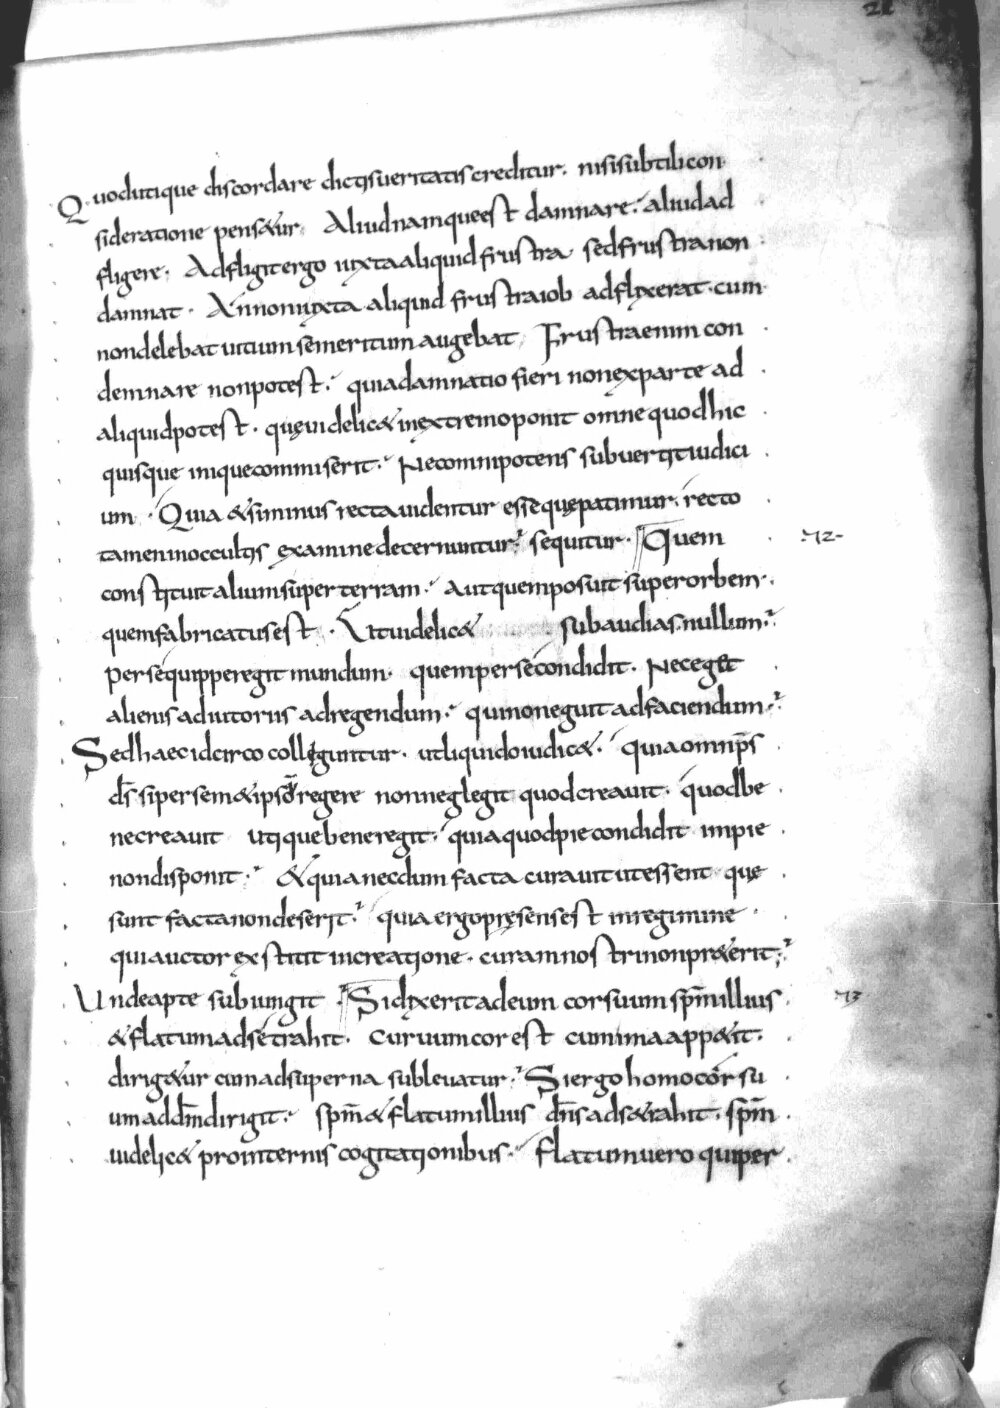 28
Quod utique discordare dictis ueritatis creditur. nisi subtili con
sideratione pens&ur. Aliud namque est damnare. aliud ad
fligere. Adfligit ergo iuxta aliquid frustra. sed frustra non
damnat. An non iuxta aliquid frustra iob adflixerat. cum
non delebat uitium sed meritum augebat. Frustra enim con
demnare non potest. quia damnatio fieri non ex parte ad
aliquid potest. quę uidelic& in extremo ponit omne quod hic
quisque inique commiserit. Nec omnipotens subuertit iudici
um. Quia & si minus recta uidentur esse quę patimur. recto
tamen in occultis examine decernuntur. sequitur. Quem
72
constituit alium super terram. Aut quem posuit super orbem.
quem fabricatus est. Ut uidelic& subaudias nullum.
Per se quippe regit mundum. quem per se condidit. Nec eget
alienis adiutoriis ad regendum. qui non eguit ad faciendum.
Sed haec idcirco colleguntur. ut liquido iudic&. quia omnip̄s
d̄s si per sem&ipsū regere non neglegit quod creauit. quod be
ne creauit utique bene regit. quia quod pie condidit impie
non disponit. & qui a necdum facta curauit ut essent que
sunt facta non deserit. quia ergo pręsens est in regimine
qui auctor exstitit in creatione. curam nostri non pr&erit.
Unde apte subiungit. Si dixerit ad eum cor suum sp̄m illius
73
& flatum ad se trahit. Curuum cor est cum ima app&it.
dirig&ur cum ad superna subleuatur. Si ergo homo cor su
um ad dn̄m dirigit. sp̄m & flatum illius dn̄s ad se trahit. sp̄m
uidelic& pro internis cogitationibus. flatum uero qui per